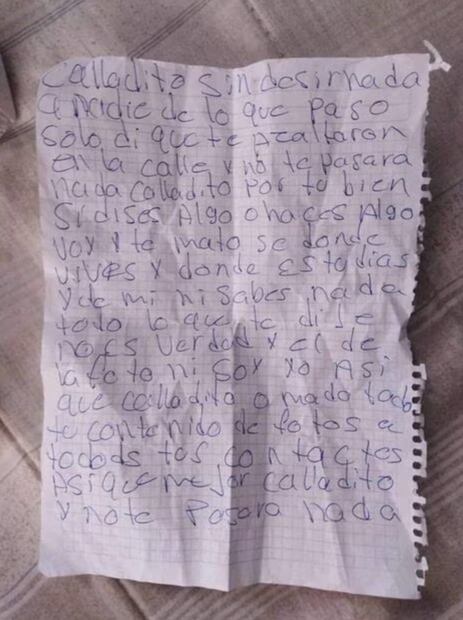 Calladito sin desirnada
a nadie de lo que paso
solo di que te Azaltaron
en la calle y no te pasara
nada calladito por tu bien
Si dises Algo o haces Algo
voy y te mato se donde
vives y donde estudias
y de mi ni sabes nada
todo lo que te dije
no es verdad y el de
la foto ni soy yo Asi
que calladito o mado todo
tu contenido de fotos a
tocods tos contactes
Asi que mejor calladito
y no te pasara nada